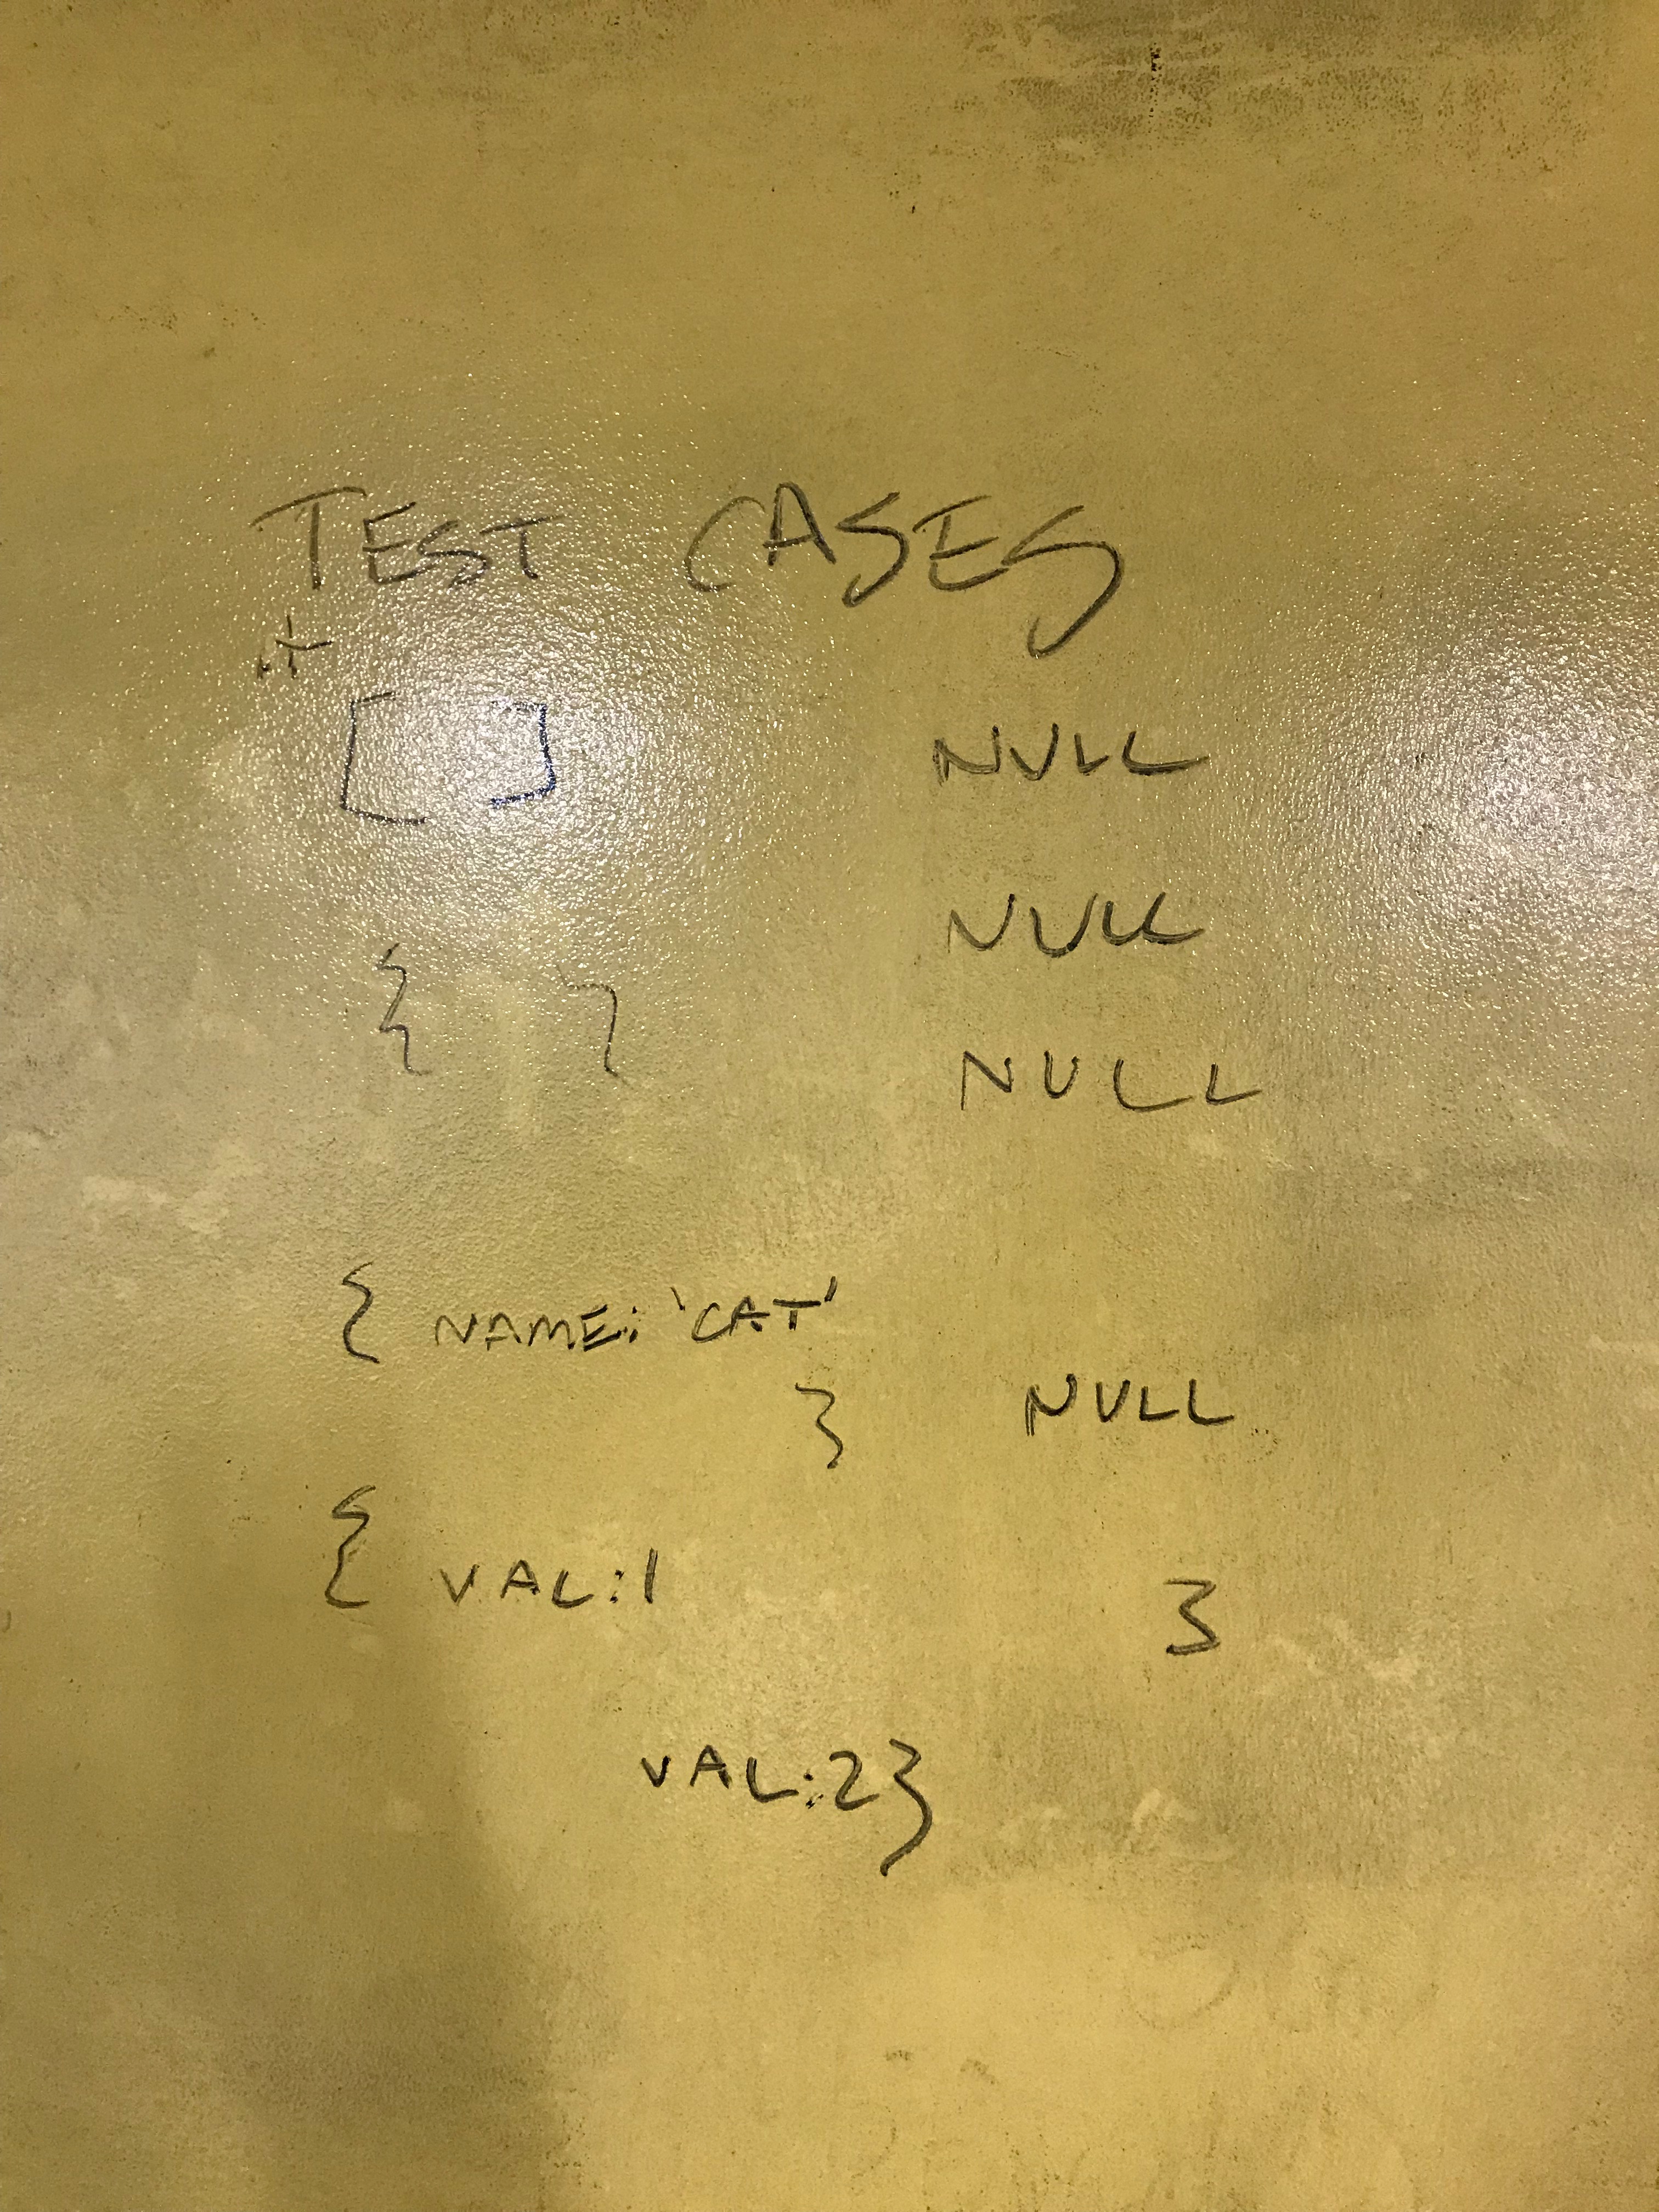 TEST CASES
+
[ ] NULL
NULL
{ }
NULL
{ NAME: 'CAT'
} NULL
{ VAL:1
3
VAL:2}